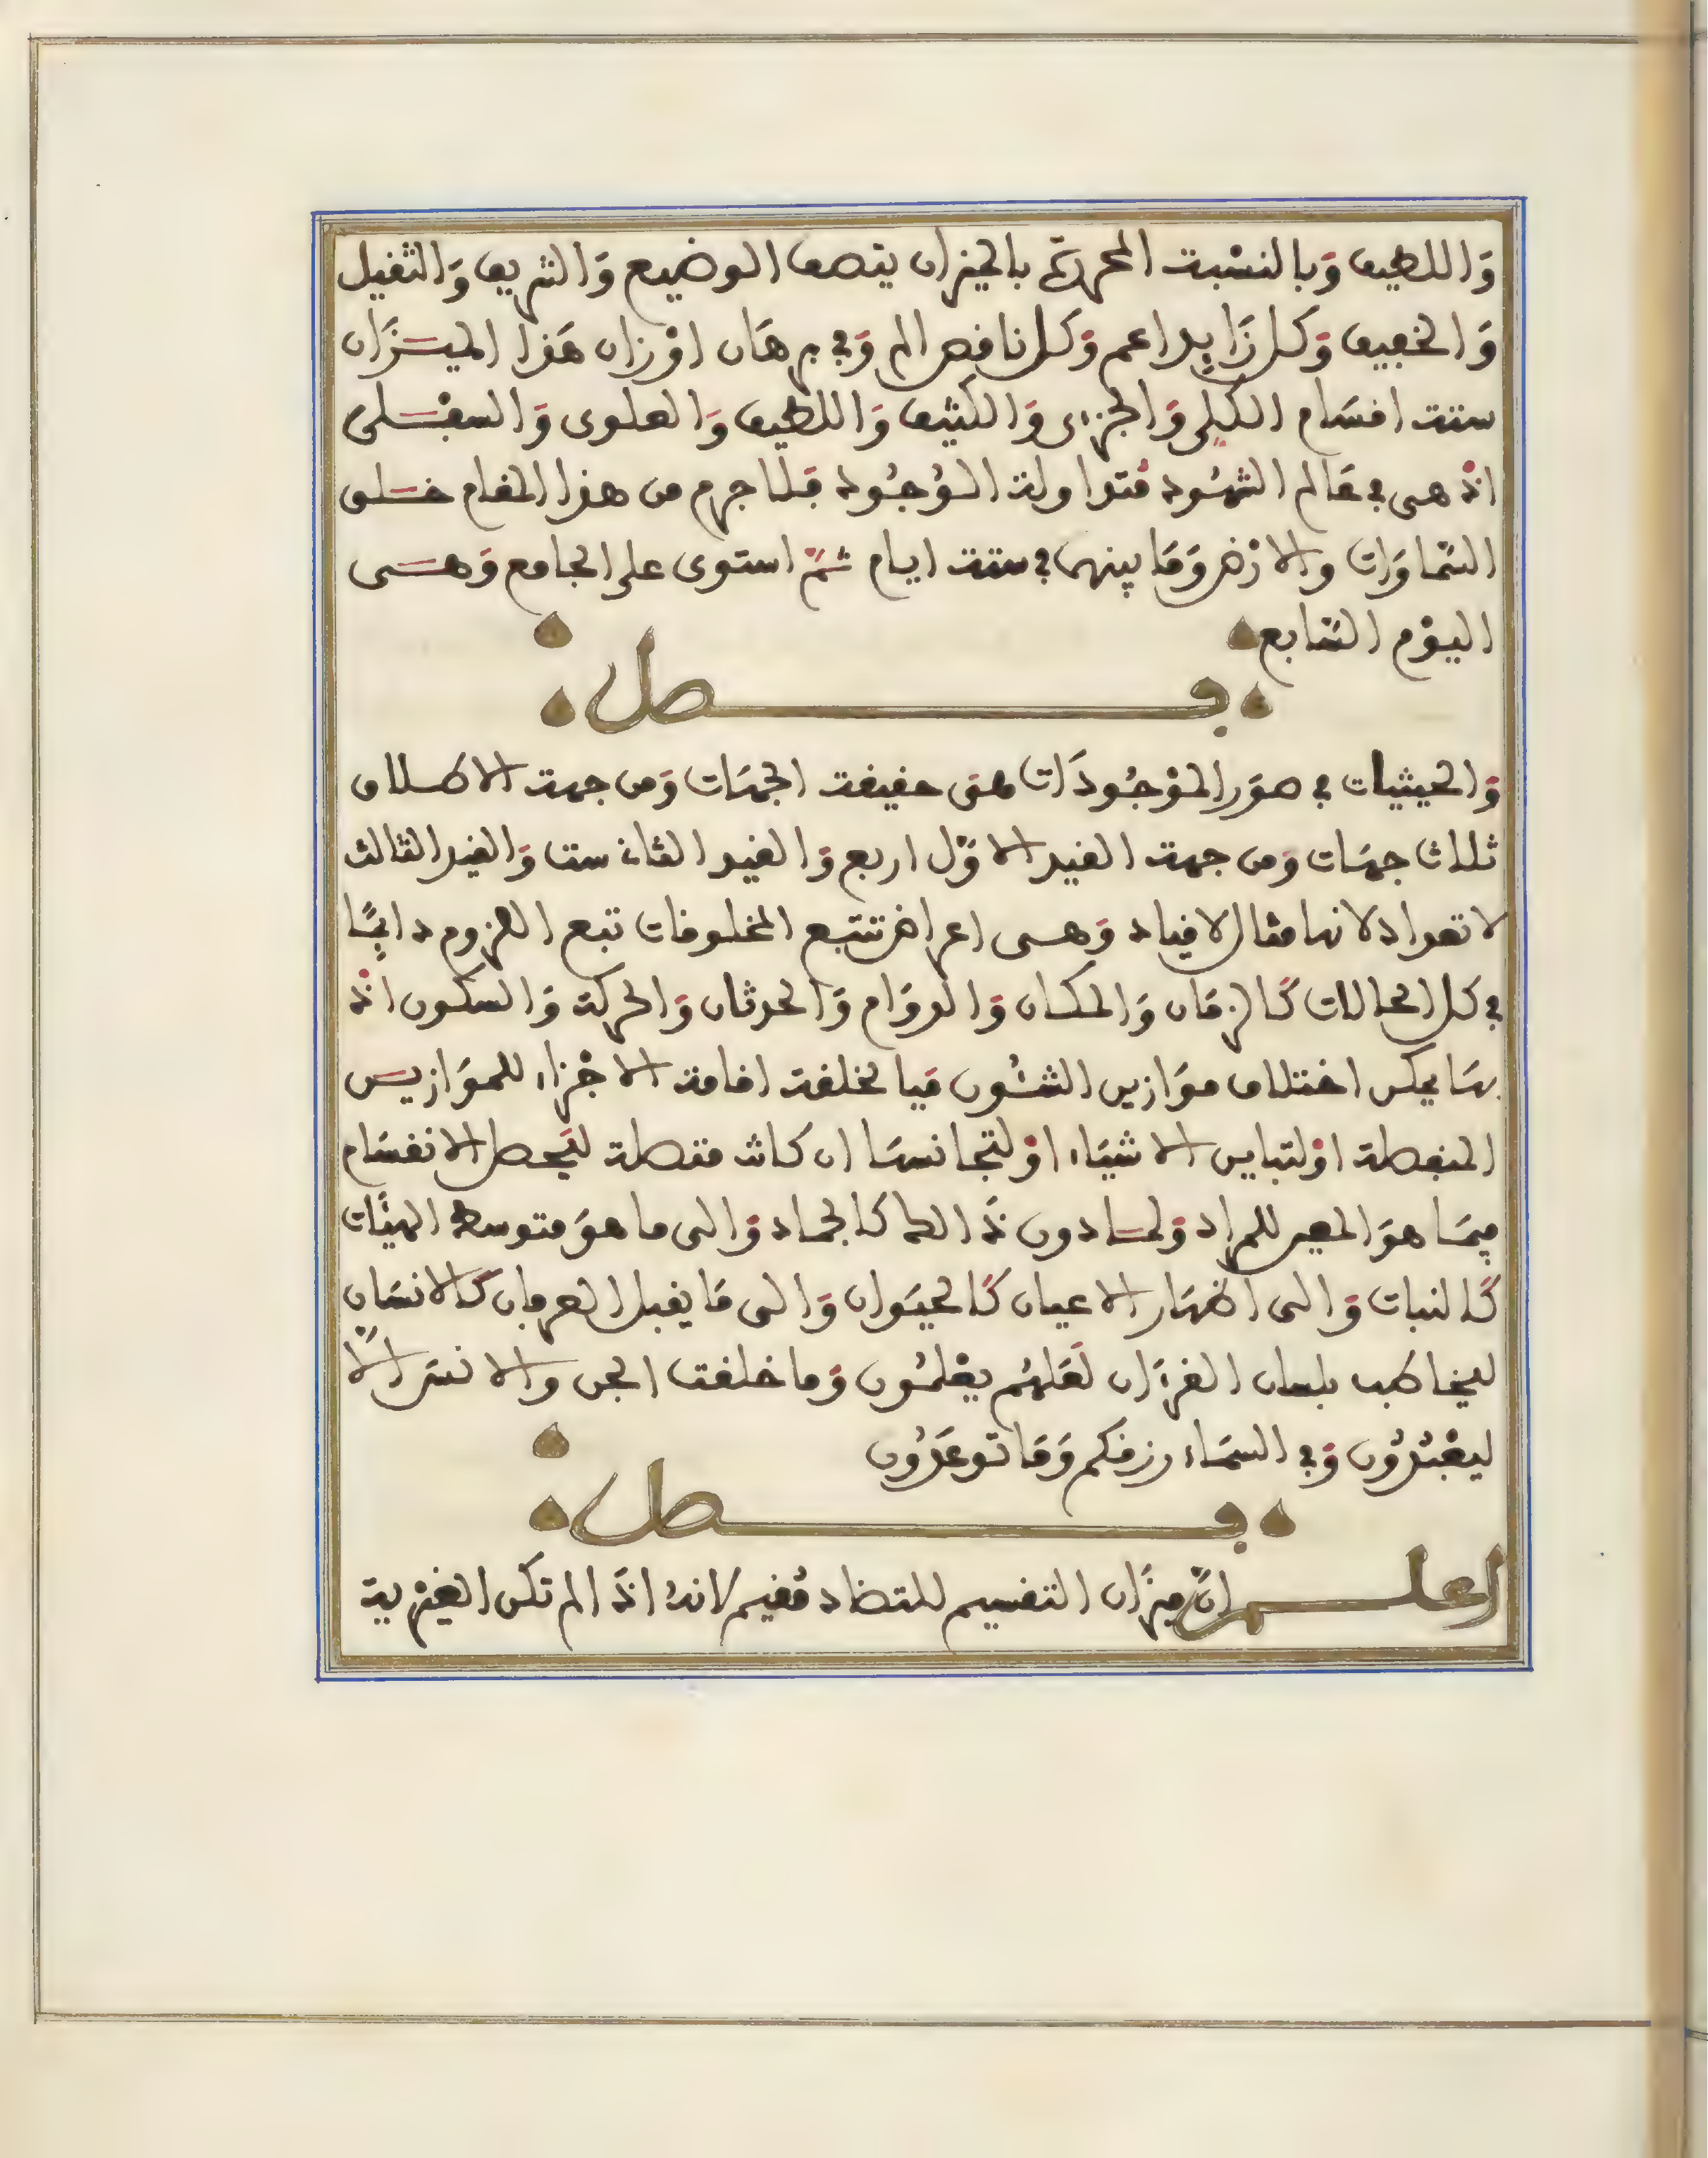 وَاللطيف وَبالنسْبت المحررَة بالميزان يتصف الوضيع وَالشريف وَالثقيل
وَالخفيف وَكل زَايد اعم وَكل نافص الم وَفي برهَان اوْزان هَذا الميــزَان
ستت اقسَام الكلي وَالجزءى وَالكثيف وَاللطيف وَالعلوى وَالسفْـلى
اذ هى في عَالم الشهُود مُتداولة الوُجُود فَلاجرم من هذا المقام خــلق
السَّمَاوَات والارْض وَمَا بينهمَا في ستت ايام ثــمّ استوى على الجامع وَهــى
اليوْم السَّابع
فــصل
وَالحيثيات في صوَر الموْجُودَات هىَ حقيقت الجهَات وَمن جهت الاطــلاق
ثلاث جهَات وَمن جهت القيد الاوّل اربع وَالقيد الثان ست وَالقيد الثالث
لا تعداد لانها مثال لاقياد وَهــى اعراض تتبع المخلوقات تبع العزوم دايمًا
في كل الحالات كَالزمَان وَالمكان وَالدوَام وَالحدثان وَالحركة وَالسكون اذ
بهَا يمكن اختلاف موَازين الشئُون فيا لخلقت اقامت الاجْزاء للموَازيــن
المنفصلة اوْ لتباين الاشيَاء اوْ لتجانسهَا ان كانت متصلة ليَحصل الانقسَام
فيمَا هوَ المعبر للمراد وَلمــادون ذَالك كالجماد وَالى ما هوَ متوسط الهيئَات
كَالنبات وَالى اظهَار الاعيان كَالحيَوان وَالى مَا يقبل العرفان كَالانسَان
ليخاطب بلسان القرءَان لَعَلهُم يعْلمُون وَما خلقت الجن والانسَ الَّا
ليعْبُدُون وَفي السمَاء رزقكم وَمَا توعَدُون
فــصل
اعلــم انَّ ميزَان التقسيم للمتضاد مُقيم لانهُ اذَا لم تكن الغيْرية